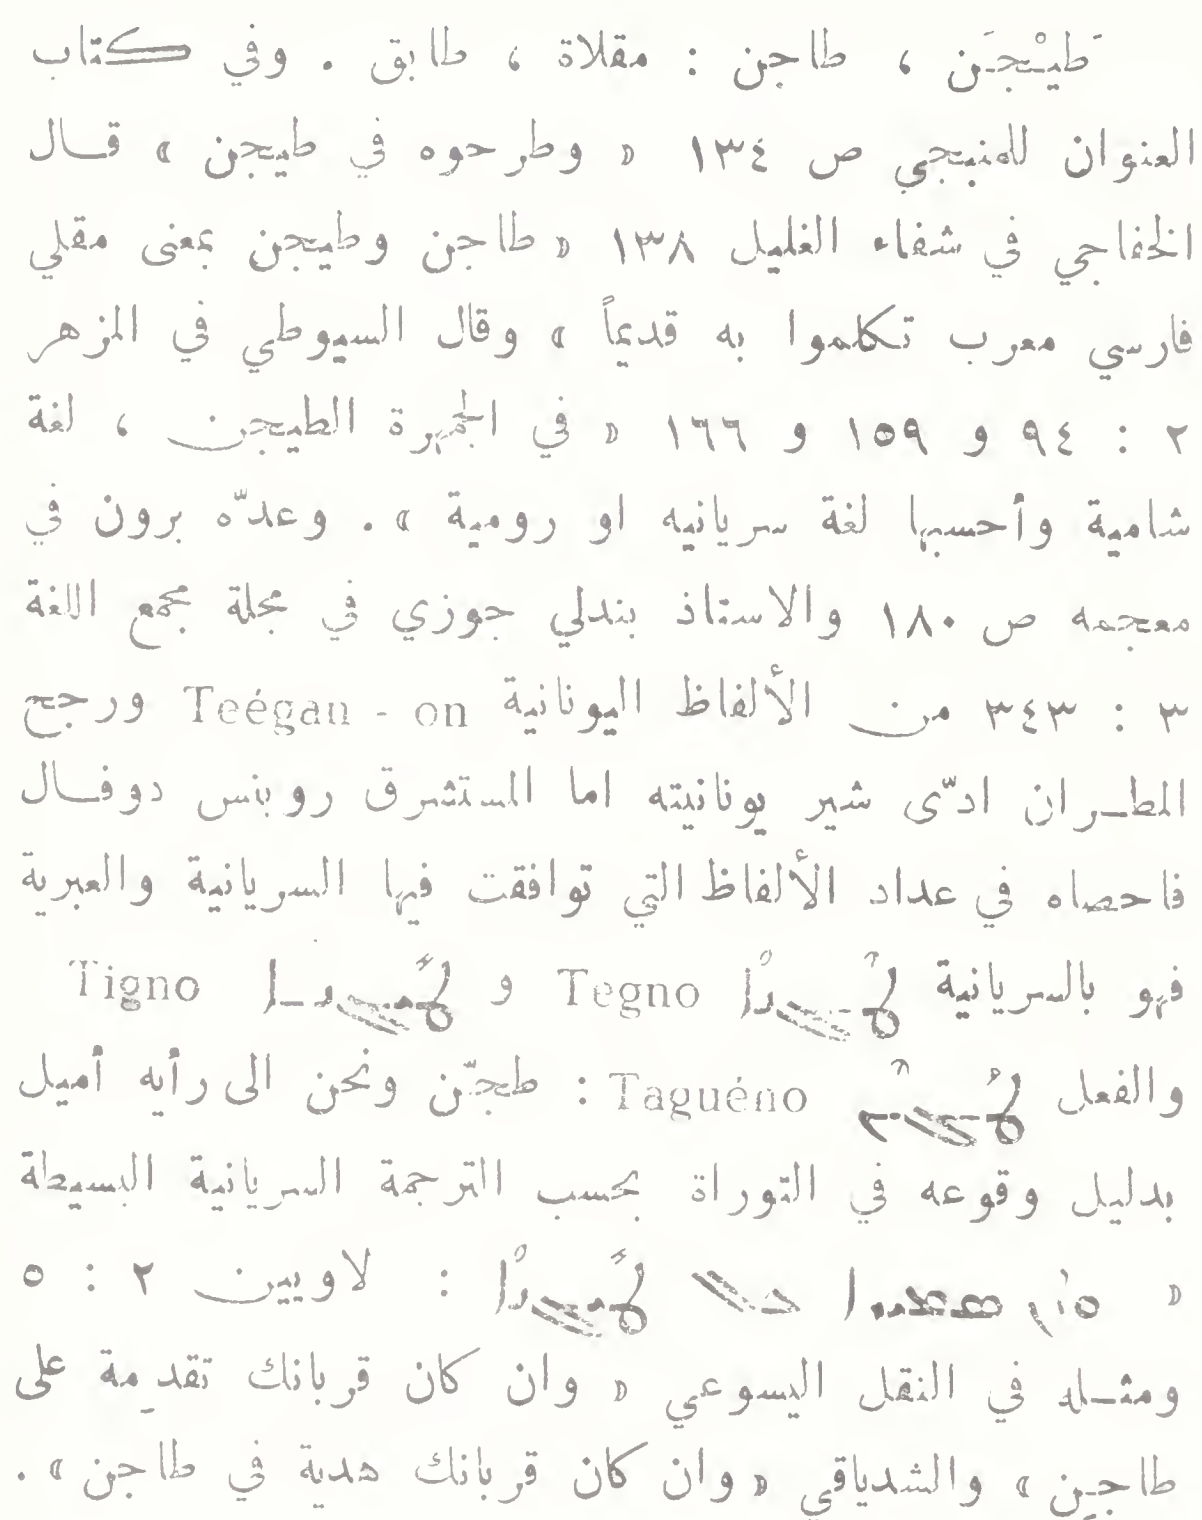 طَيْجَن ، طاجن : مقلاة ، طابق . وفي كتاب
العنوان للمنبجي ص ١٣٤ « وطرحوه في طيجن » قال
الخفاجي في شفاء الغليل ١٣٨ « طاجن وطيجن بمعنى مقلي
فارسي معرب تكلموا به قديماً » وقال السيوطي في المزهر
٢ : ٩٤ و ١٥٩ و ١٦٦ « في الجمهرة الطيجن ، لغة
شامية وأحسبها لغة سريانيه او رومية » . وعدّه برون في
معجمه ص ١٨٠ والاستاذ بندلي جوزي في مجلة مجمع اللغة
٣ : ٣٤٣ من الألفاظ اليونانية Teégan - on ورجح
المطران ادّى شير يونانيته اما المستشرق روبنس دوفال
فاحصاه في عداد الألفاظ التي توافقت فيها السريانية والعبرية
فهو بالسريانية ܛܶܓܢܳܐ Tegno و ܛܺܝܓܢܐ Tigno
والفعل ܛܰܓܶܢ Taguéno : طجّن ونحن الى رأيه أميل
بدليل وقوعه في التوراة بحسب الترجمة السريانية البسيطة
« ܥܠ ܛܺܝܓܢܳܐ : لاويين ٢ : ٥
ومثله في النقل اليسوعي « وان كان قربانك تقدِمة على
طاجِن » والشدياقي « وان كان قربانك هدية في طاجن » .